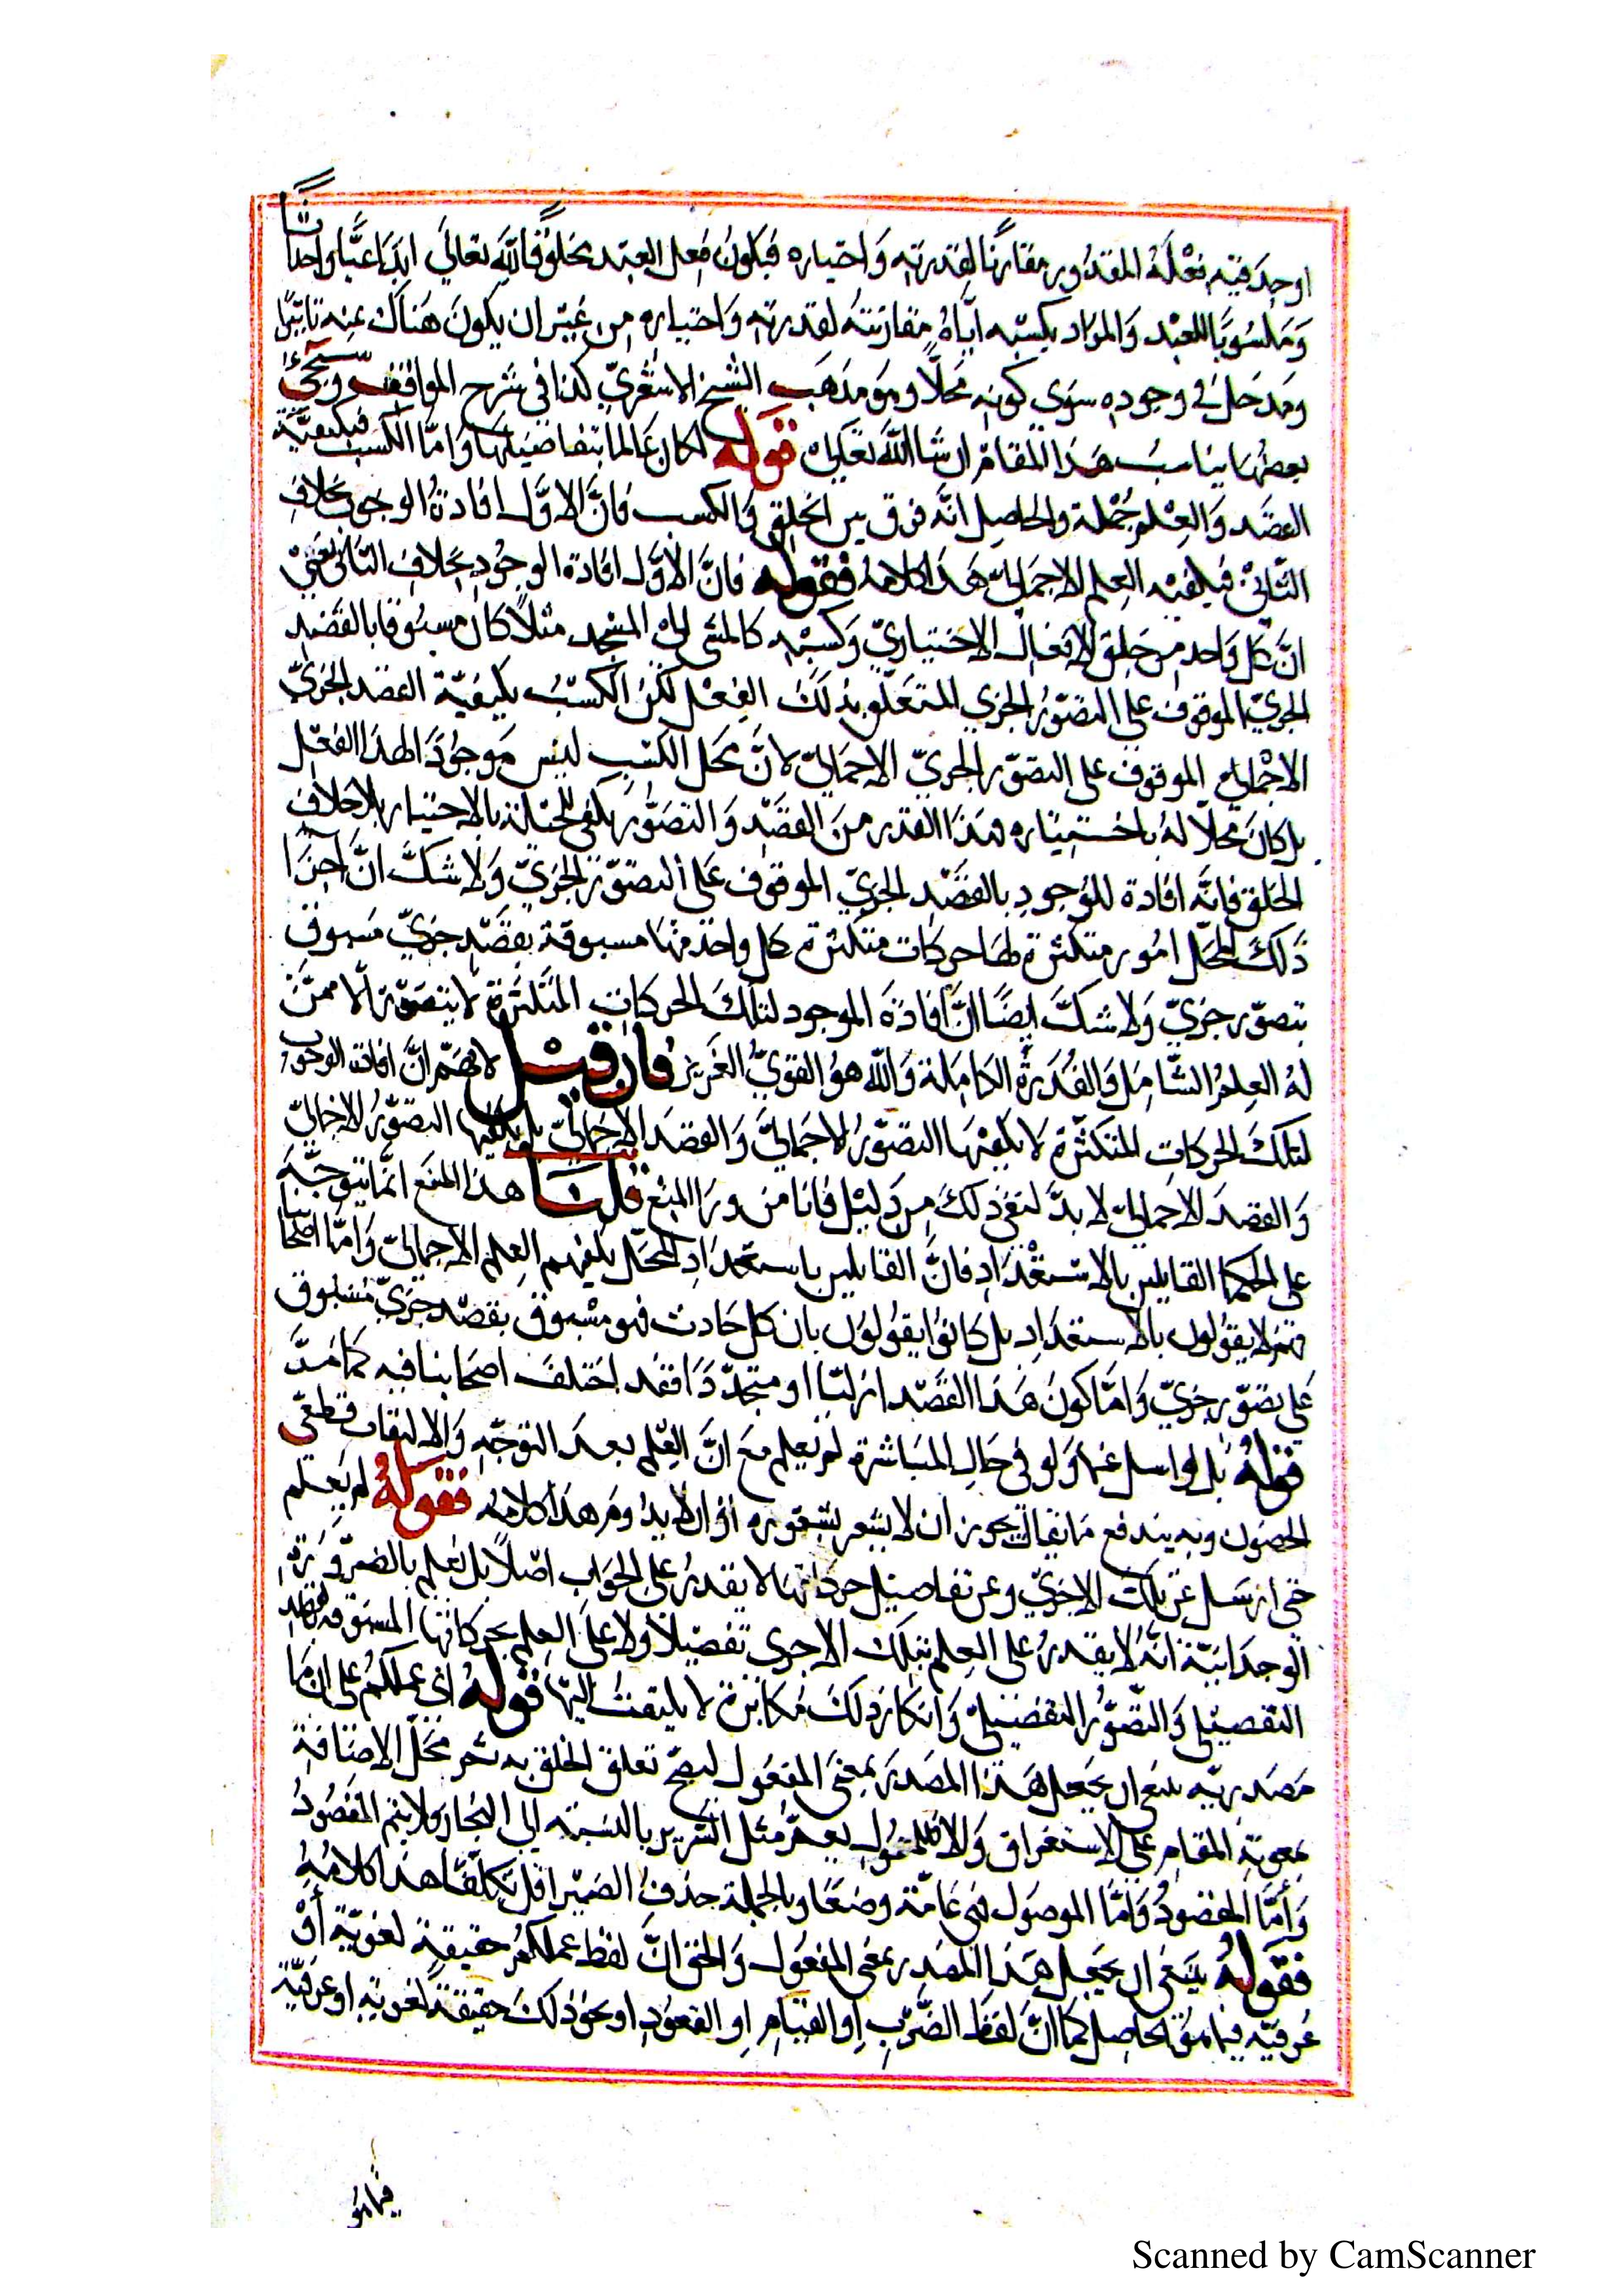 اوجد فيه فعله المقدور مقارنا لقدرته واختياره فيكون فعل العبد مخلوقا لله تعالى ابداعا واحداثا
ومكسوبا للعبد والمراد بكسبه اياه مقارنته لقدرته واختياره من غير ان يكون هناك عنه تاثيرا
ومدخل في وجوده سوى كونه محلا وهو مذهب الشيخ الاشعري كذا في شرح المواقف وسيجئ
بعض ما يناسب هذا المقام ان شا الله تعالى قوله لكان عالما بتفاصيلها واما الكسب فيكفيه
القصد والعلم جملة والحاصل انه فرق بين الخلق والكسب فان الاول افادة الوجود بخلاف
الثاني فيكفيه العلم الاجمالي هذا كلامه فقوله فان الاول افادة الوجود بخلاف الثاني يعني
ان كل واحد من خلق الافعال الاختياري وكسبه كالمشي الى المسجد مثلا كان مسبوقا بالقصد
الجزي الموقوف على التصور الجزي المتعلق بذلك الفعل لكن الكسب يكفيه القصد الجزي
الاجمالي الموقوف على التصور الجزي الاجمالي لان محل الكسب ليس موجودا لهذا الفعل
بل كان محلا له باختياره فهذا القدر من القصد والتصور يكفي للحاله بالاختيار بلا خلاف
الخلق فانه افادة للوجود بالقصد الجزي الموقوف على التصور الجزي ولا شك ان اجزا
ذلك المحل امور متكثرة لها حركات متكثرة كل واحد منها مسبوقة بقصد جزي مسبوق
بتصور جزي ولا شك ايضا ان افادة الموجود لتلك الحركات المتكثرة لا يتصور الا ممن
له العلم الشامل والقدرة الكاملة والله هو القوي العزيز فان قيل لا نسلم ان افادة الوجود
لتلك الحركات المتكثرة لا يكفيها التصور الاجمالي والقصد الاجمالي بل يكفيها التصور الاجمالي
والقصد الاجمالي لا بد لنفي ذلك من دليل فانا من ورا المنع قلنا هذا المنع انما يتوجه
على الحكما القايلين بالاستعداد فان القايلين باستعداد المحل يكفيهم العلم الاجمالي واما اصحابنا
فهم لا يقولون بالاستعداد بل كانوا يقولون بان كل حادث فهو مسبوق بقصد جزي مسبوق
على تصور جزي واما كون هذا القصد ازليا او متجددا فقد اختلف اصحابنا فيه كما مر
قوله بل لو اسل عنها ولو في حال المباشرة لم يعلم مع ان العلم بعد التوجه والالتفات قطعي
الحصول وبه يندفع ما يقال يجوز ان لا يشعر بشعوره او لا يدوم هذا كلامه فقوله لم يعلم
حتى ان سل عن تلك الاجزى وعن تفاصيل حركاتها لا يقدر على الجواب اصلا بل نعلم بالضرورة
الوجدانية انه لا يقدر على العلم بتلك الاجزى تفصيلا ولا على العلم بحركاتها المسبوقة بالقصد
التفصيلي والتصور التفصيلي وانكار ذلك مكابرة لا يلتفت اليها قوله اي عملكم على ان ما
مصدريه ينبغي ان يجعل هذا المصدر بمعنى المفعول ليصح تعلق الخلق به ثم محل الاضافة
بمعونة المقام على الاستغراق والا فالمعمول يعم مثل السرير بالنسبة الى النجار ولا يتم المقصود
واما المقصود واما الموصول فهي عامة وضعا وبالجملة حذف الضمير اقل تكلفا هذا كلامه
فقوله ينبغي ان يجعل هذا المصدر بمعنى المفعول والحق ان لفظ عملكم حقيقة لغوية او
عرفيه فيما هو الحاصل كما ان لفظ الضرب او القيام او القعود او نحو ذلك حقيقة لغوية او عرفية
فيما هو
Scanned by CamScanner